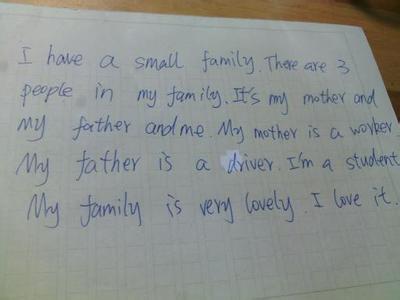 I have a small family. There are 3
people in my family. It's my mother and
my father and me. My mother is a worker.
My father is a driver. I'm a student
My family is very lovely. I love it.